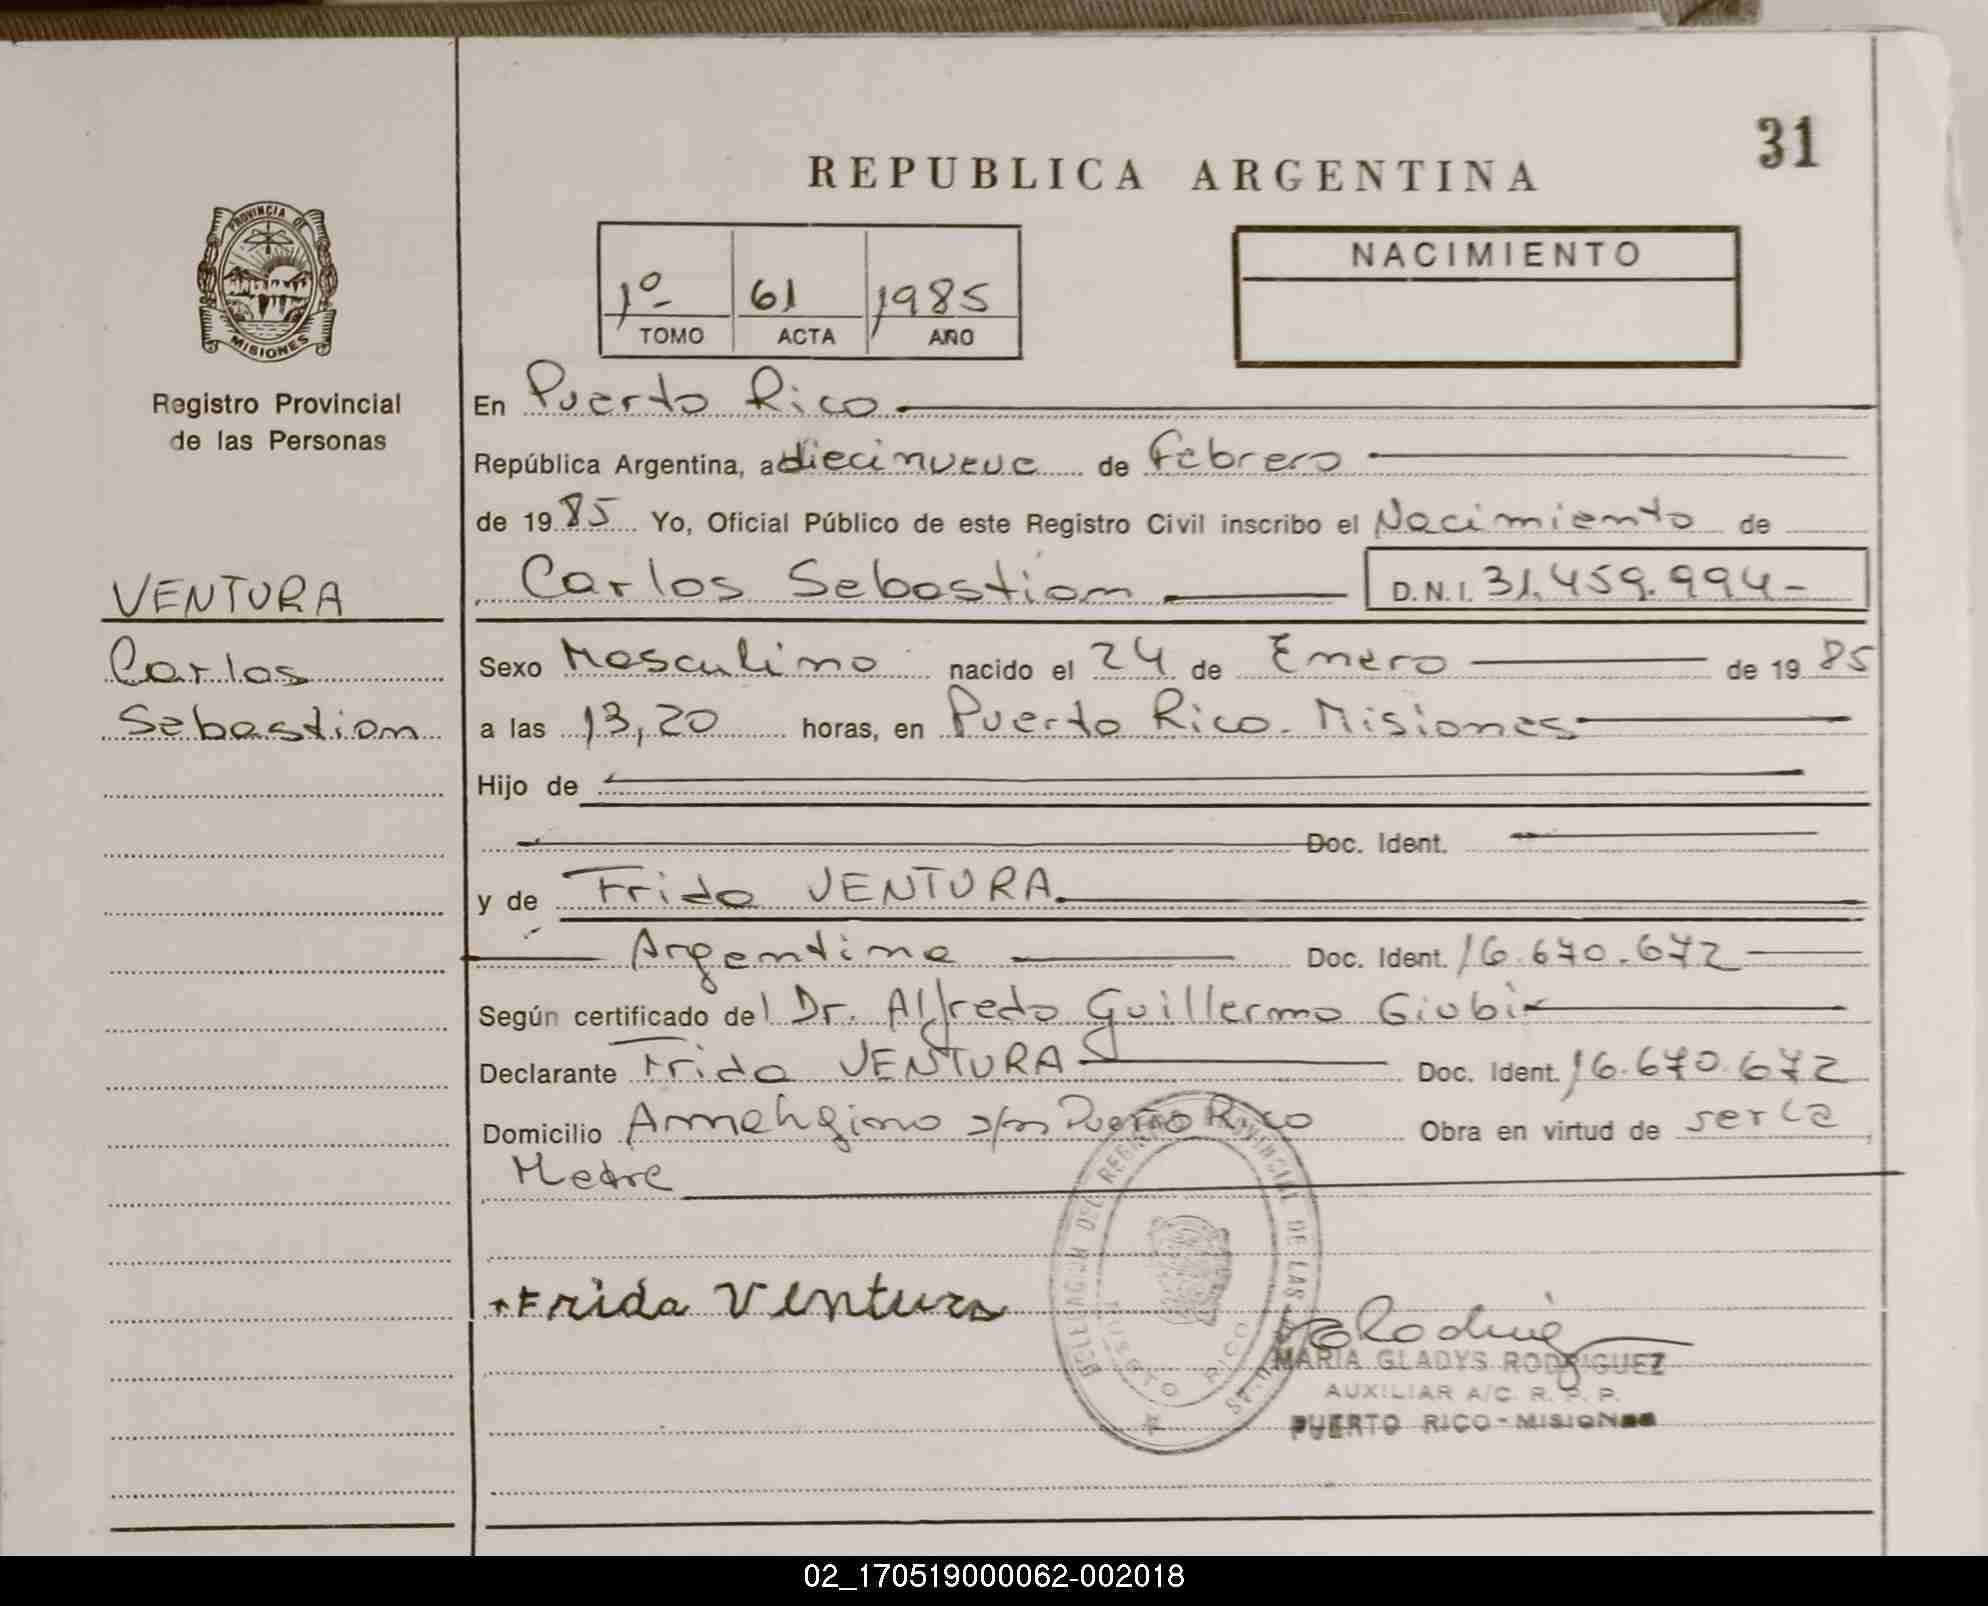 31
REPUBLICA ARGENTINA
PROVINCIA DE
MISIONES
Registro Provincial
de las Personas
1º 61 1985
TOMO ACTA AÑO
NACIMIENTO
En Puerto Rico
República Argentina, a diecinueve de Febrero
de 1985 Yo, Oficial Público de este Registro Civil inscribo el Nacimiento de
VENTURA
Carlos
Sebastian
Carlos Sebastian D.N.I. 31.459.994-
Sexo Masculino nacido el 24 de Enero de 1985
a las 13,20 horas, en Puerto Rico. Misiones
Hijo de
Doc. Ident.
y de Frida VENTURA
Argentina Doc. Ident. 16.670.672
Según certificado del Dr. Alfredo Guillermo Giubi
Declarante Frida VENTURA Doc. Ident. 16.670.672
Domicilio s/n Puerto Rico Obra en virtud de ser la
Madre
DELEGACION DEL REGISTRO PROVINCIAL DE LAS PERSONAS
PUERTO RICO
Frida Ventura
Rodriguez
MARIA GLADYS RODRIGUEZ
AUXILIAR A/C. R. P. P.
PUERTO RICO - MISIONES
02_170519000062-002018